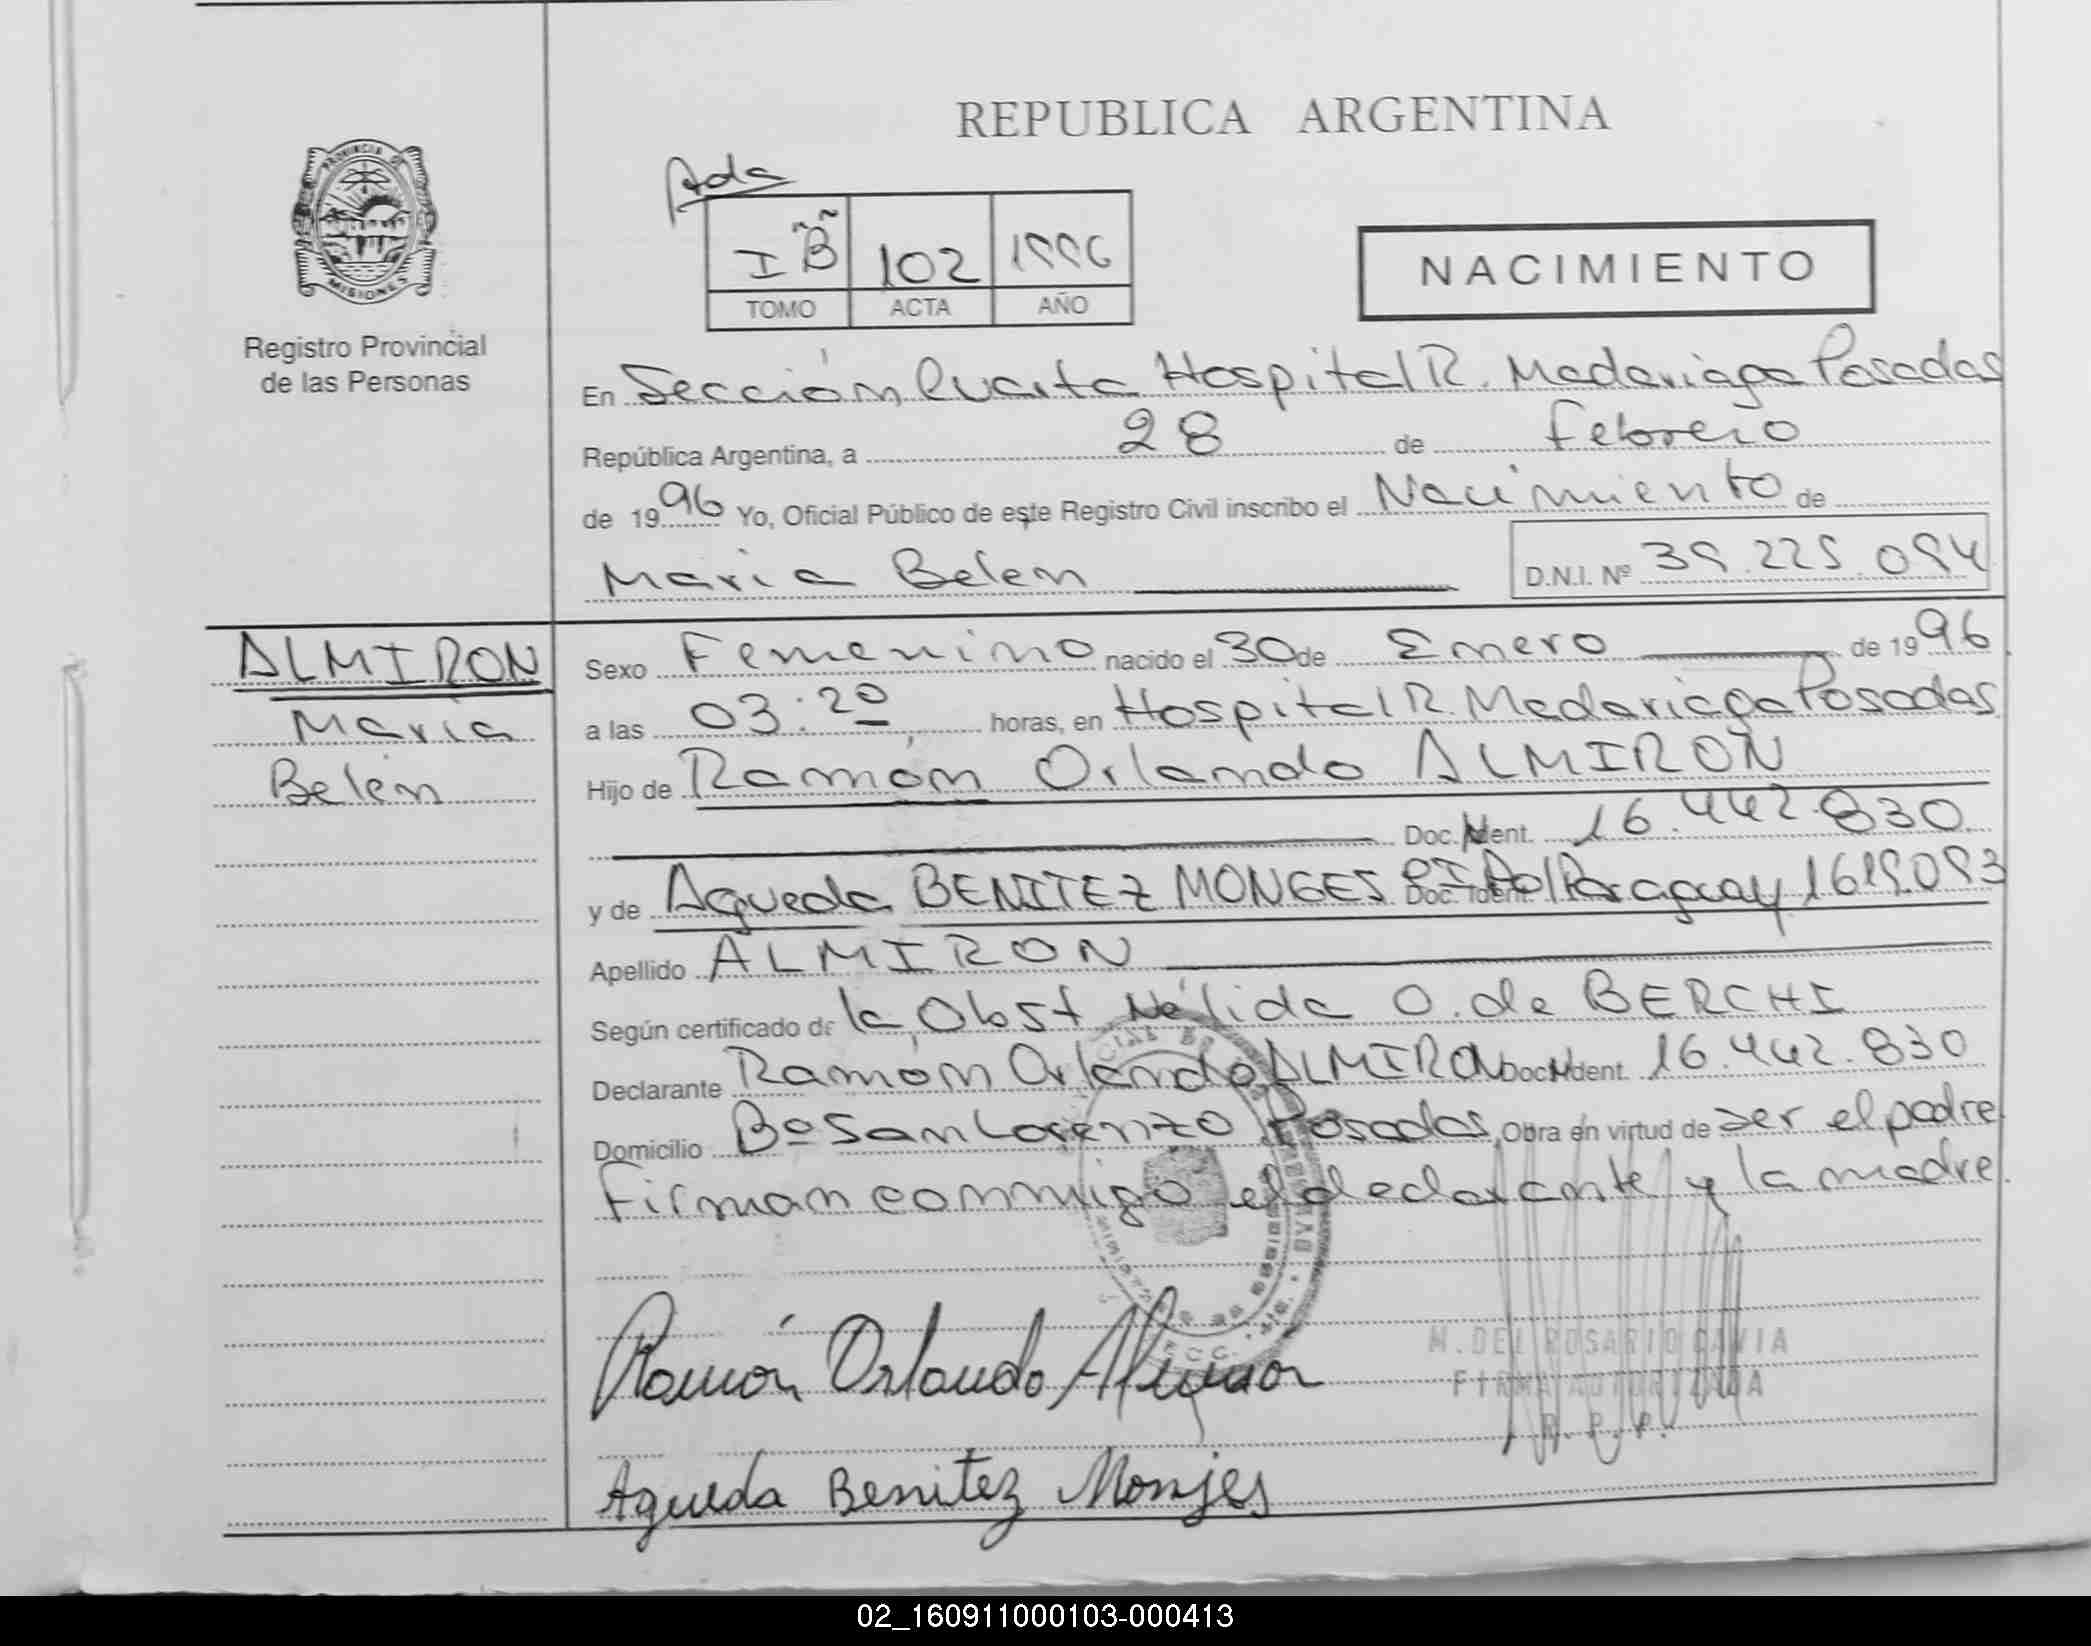 REPUBLICA ARGENTINA
PROVINCIA DE
MISIONES
Registro Provincial
de las Personas
Ada
I B 102 1996
TOMO ACTA AÑO
NACIMIENTO
En Sección Cuarta Hospital R. Madariaga Posadas
República Argentina, a 28 de Febrero
de 1996 Yo, Oficial Público de este Registro Civil inscribo el Nacimiento de
Maria Belen D.N.I. Nº 39.225.094
ALMIRON
Maria
Belén
Sexo Femenino nacido el 30 de Enero de 1996
a las 03:20 horas, en Hospital R. Madariaga Posadas
Hijo de Ramón Orlando ALMIRON
Doc. Ident. 16.442.830
y de Agueda BENITEZ MONGES Doc. Ident. CI Pol Paraguay 1619.093
Apellido ALMIRON
Según certificado de la Obst Nélida O. de BERCHI
Declarante Ramón Orlando ALMIRON Doc. Ident. 16.442.830
Domicilio Bº San Lorenzo Posadas, Obra en virtud de ser el padre
Firman conmigo el declarante y la madre.
Ramón Orlando Almiron
M. DEL ROSARIO GAVIA
FIRMA AUTORIZADA
R. P. P.
Agueda Benitez Monjes
02_160911000103-000413